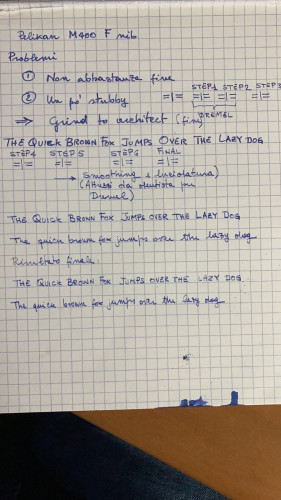 Pelikan M400 F nib
Problemi
① Non abbastanza fine
STEP1 STEP2 STEP3
② Un po' stubby =|= =|= =|= =|=
DREMEL
⇒ Grind to architect (fine)
THE QUICK BROWN FOX JUMPS OVER THE LAZY DOG
STEP4 STEP5 STEP6 FINAL
=|= =|= =|= =|=
→ Smoothing e lucidatura
(Attrezzi da dentista per
Dremel)
THE QUICK BROWN FOX JUMPS OVER THE LAZY DOG
The quick brown fox jumps over the lazy dog
Risultato finale.
THE QUICK BROWN FOX JUMPS OVER THE LAZY DOG.
The quick brown fox jumps over the lazy dog